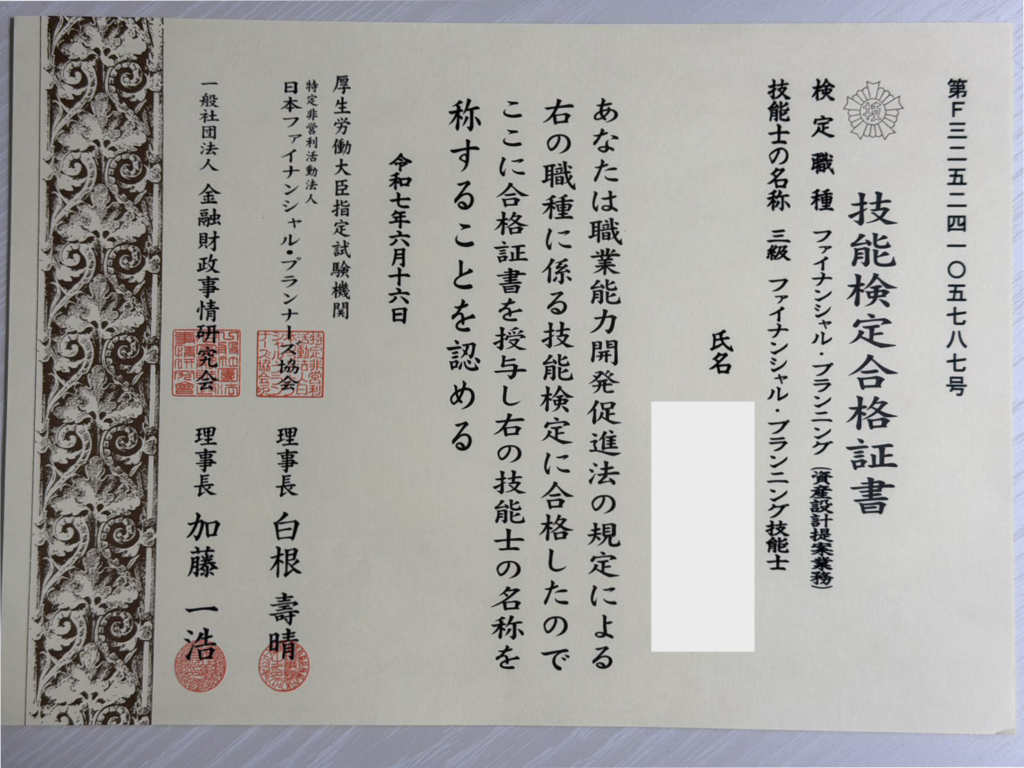 第F三二五二四一〇五七八七号
技
技能検定合格証書
検定職種 ファイナンシャル・プランニング(資産設計提案業務)
技能士の名称 三級 ファイナンシャル・プランニング技能士
氏名
あなたは職業能力開発促進法の規定による
右の職種に係る技能検定に合格したので
ここに合格証書を授与し右の技能士の名称を
称することを認める
令和七年六月十六日
厚生労働大臣指定試験機関
特定非営利活動法人
日本ファイナンシャル・プランナーズ協会 理事長 白根 壽晴
一般社団法人 金融財政事情研究会 理事長 加藤 一浩